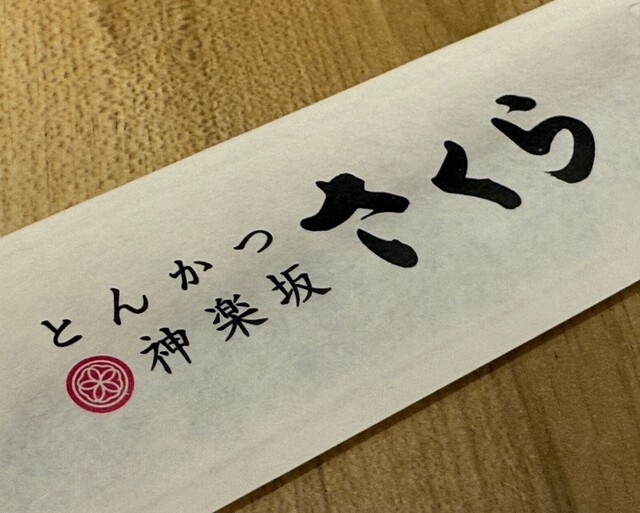 とんかつ
神楽坂
さくら